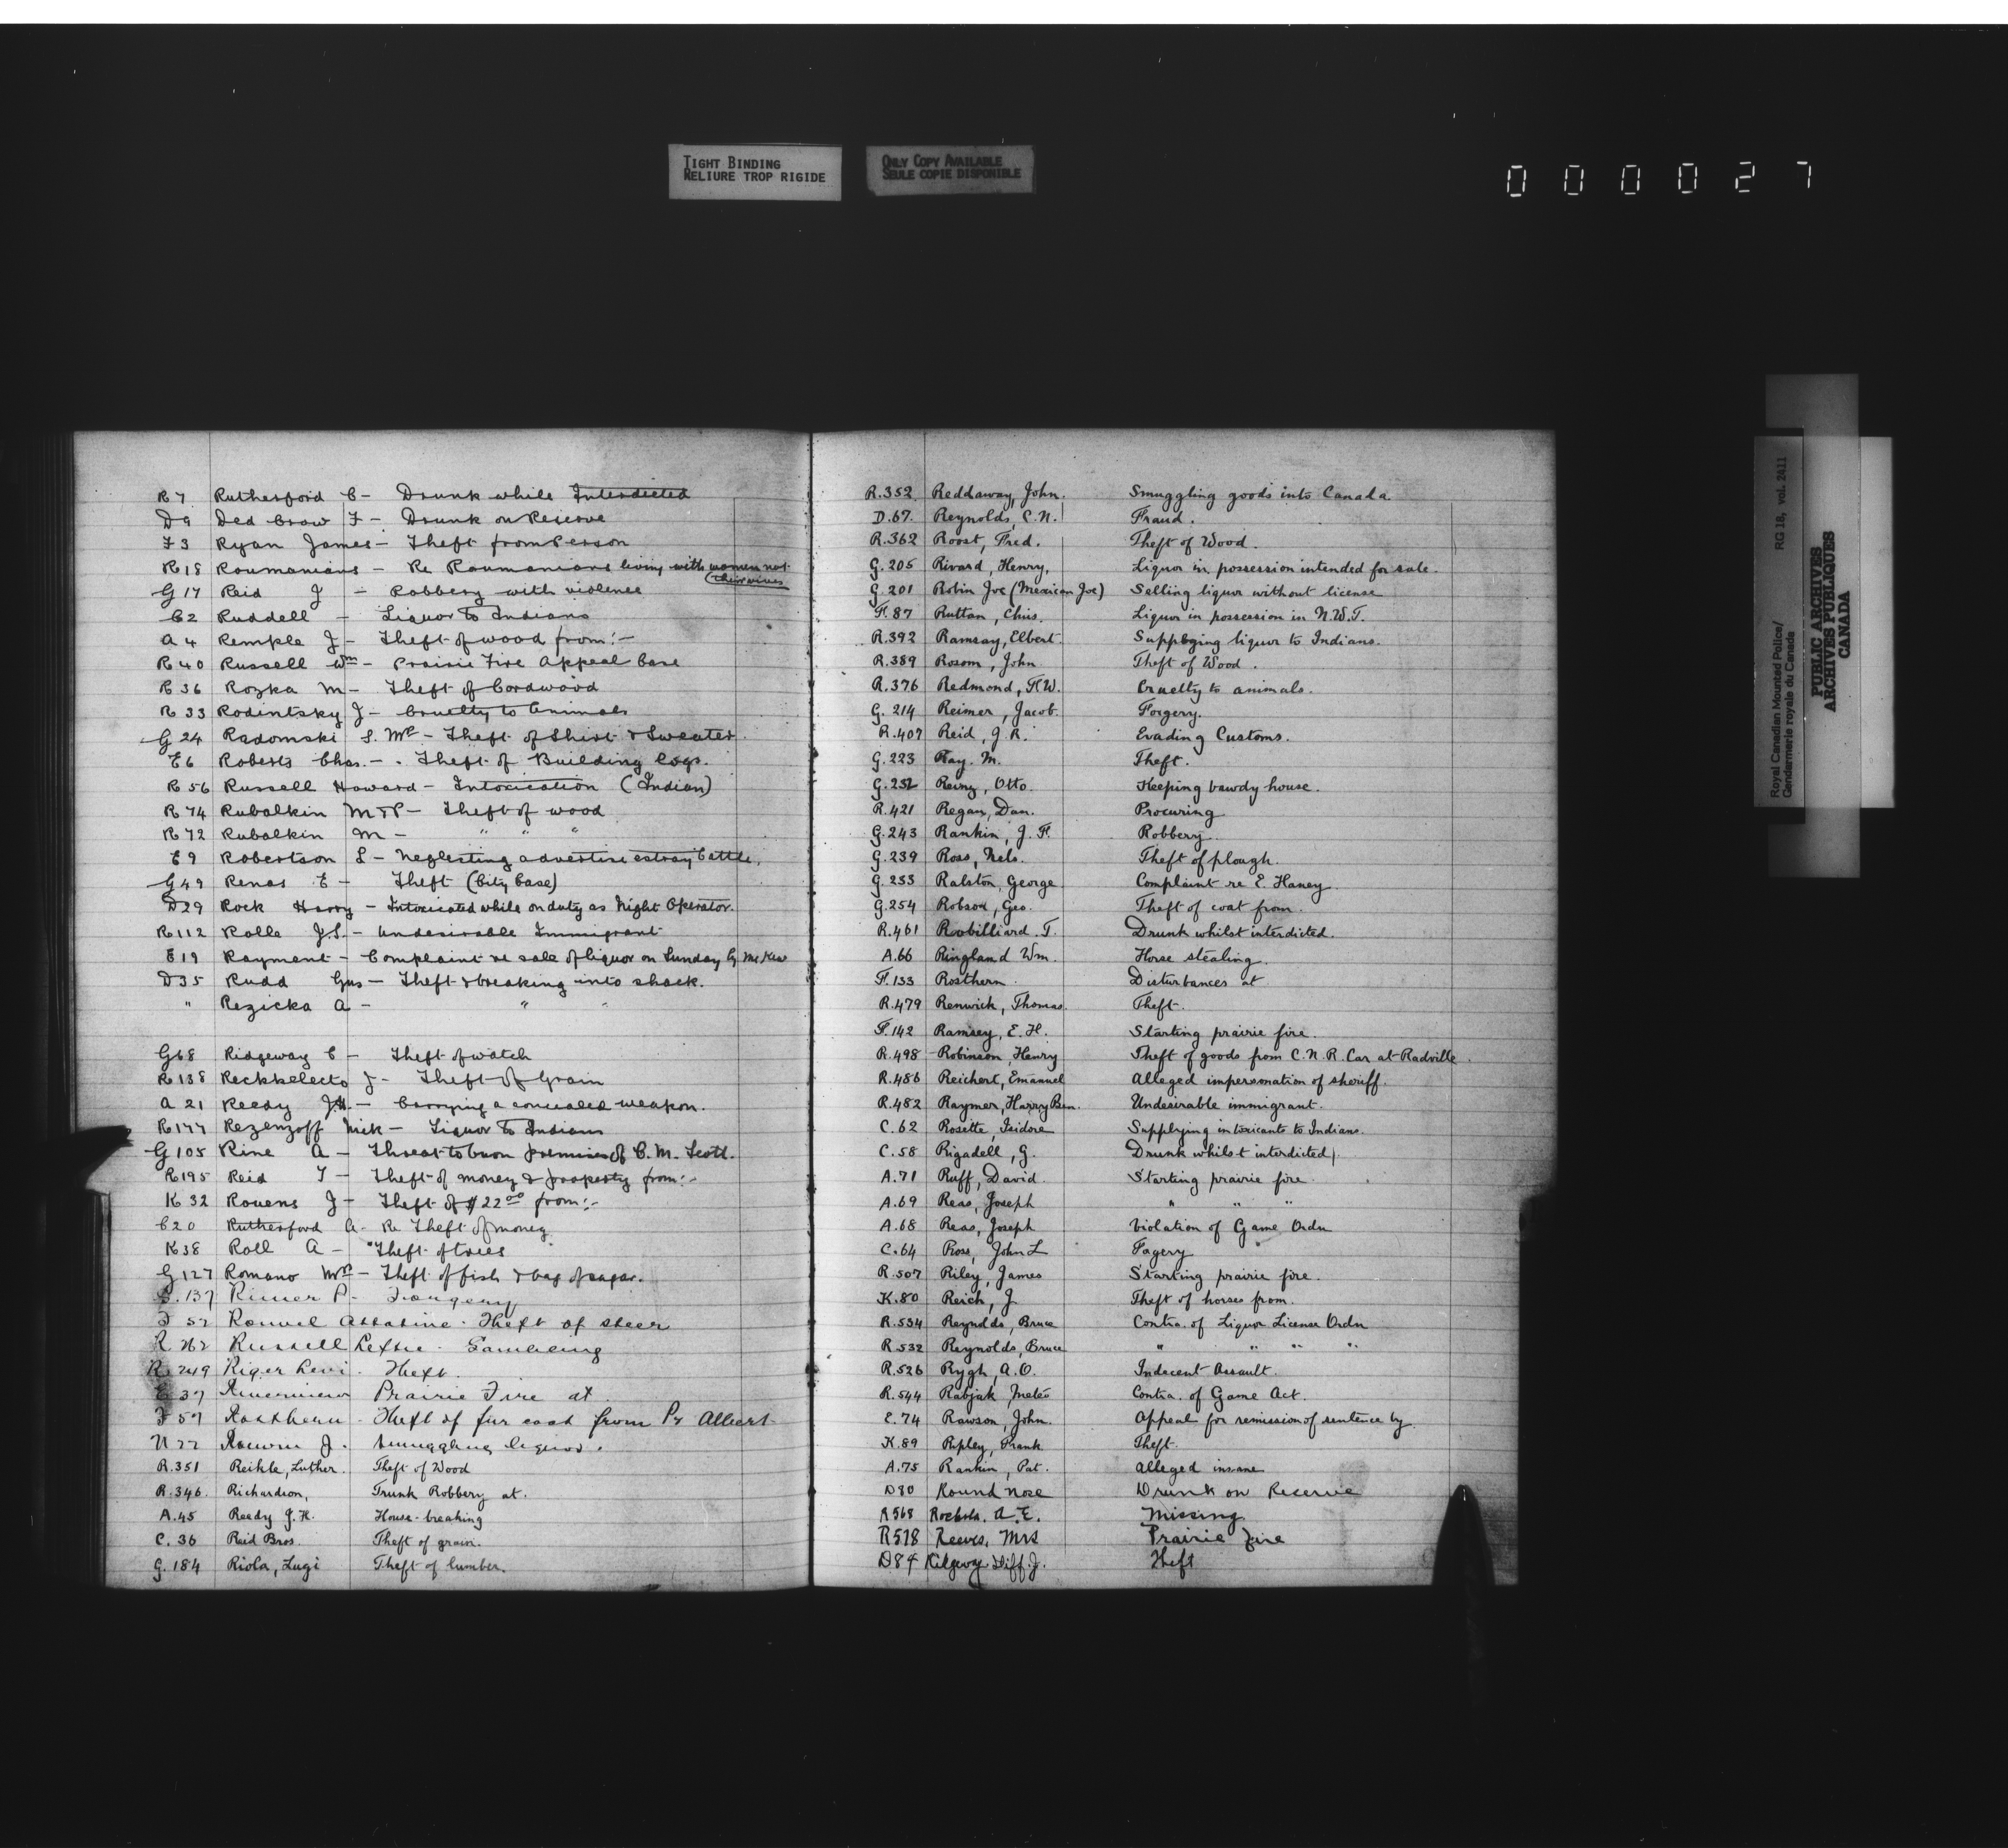 TIGHT BINDING
RELIURE TROP RIGIDE
ONLY COPY AVAILABLE
SEULE COPIE DISPONIBLE
000027
R 7 Rutherford C - Drunk while Interdicted
D9 Ded Crow F - Drunk on Reserve
F3 Ryan James - Theft from Person
R18 Roumanians - Re Roumanians living with women not
their wives
G 17 Reid J - Robbery with violence
C2 Ruddell - Liquor to Indians
A 4 Remple J - Theft of wood from:-
R 40 Russell Wm - Prairie Fire Appeal Case
R 36 Rozka M - Theft of Cordwood
R 33 Rodintsky J - Cruelty to Animals
G 24 Radomski S. Mr - Theft of Shirt & Sweater.
E6 Roberts Chas. - Theft of Building Logs.
R 56 Russell Howard - Intoxication (Indian)
R 74 Rubalkin M & P - Theft of wood
R 72 Rubalkin M - " " "
E 9 Robertson L - Neglecting advertise estray Cattle.
G 49 Renas E - Theft (City Case)
D29 Rock Harry - Intoxicated while on duty as Night Operator.
R 112 Rolle J.S. - Undesirable Immigrant
E 19 Rayment - Complaint re sale of liquor on Sunday by McKew
D35 Rudd Gus - Theft & breaking into shack.
" Rezicka A - " "
G68 Ridgeway C - Theft of watch
R 138 Reckkelecto J - Theft of Grain
A 21 Reedy J.H. - Carrying a concealed weapon.
R 177 Rezenzoff Nick - Liquor to Indians
G 105 Rine A - Threat to burn premises of C. M. Scott.
R195 Reid T - Theft of money & property from:-
K 32 Rouens J - Theft of $22 00 from:-
C20 Rutherford A - Re Theft of money
K38 Roll A - Theft of trees
G 127 Romano Mr - Theft of fish & bag of sugar.
G.137 Rimer P -
F 52 Theft of steer
R 262 Russell Leftie - Gambling
R 249 Riger Levi - Theft.
E 37 Prairie Fire at
F 59 Rosthern - Theft of fur coat from Pr Albert
N 22 J. Smuggling liquor.
R.351 Reikle, Luther. Theft of Wood
R.346. Richardson, Trunk Robbery at.
A.45 Reedy J.H. House-breaking
C. 36 Reid Bros. Theft of grain.
G. 184 Riola, Lugi Theft of lumber.
R.352. Reddaway, John. Smuggling goods into Canada.
D.67. Reynolds, C.N. Fraud.
R.362 Roost, Fred. Theft of Wood.
G.205 Rivard, Henry, Liquor in possession intended for sale.
G.201 Robin Joe (Mexican Joe) Selling liquor without license
F.87 Ruttan, Chris. Liquor in possession in N.W.T.
R.392 Ramsay, Elbert. Supplying liquor to Indians.
R.389 Rosom, John Theft of Wood.
R.376 Redmond, F.W. Cruelty to animals.
G. 214 Reimer, Jacob. Forgery.
R.407 Reid, J.R. Evading Customs.
G.223 Ray. M. Theft.
G.232 Reiny, Otto. Keeping bawdy house.
R.421 Regan, Dan. Procuring
G.243 Rankin, J. F. Robbery.
G.239 Ross, Nels. Theft of plough.
G.253 Ralston, George Complaint re E. Haney.
G.254 Robson, Geo. Theft of coat from.
R.461 Robilliard. T. Drunk whilst interdicted.
A.66 Ringland Wm. Horse stealing.
F.133 Rosthern. Disturbances at
R.479 Renwick, Thomas. Theft.
F.142 Ramsey, E. H. Starting prairie fire.
R.498 Robinson, Henry Theft of goods from C.N.R. Car at Radville.
R.486 Reichert, Emanuel Alleged impersonation of sheriff.
R.482 Raymer, Harry Ben. Undesirable immigrant.
C.62 Rosette, Isidore Supplying intoxicants to Indians.
C.58 Rigadell, G. Drunk whilst interdicted.
A.71 Ruff, David. Starting prairie fire.
A.69 Reas, Joseph " " "
A.68 Reas, Joseph Violation of Game Ordn
C.64 Ross, John L Fagery
R.507 Riley, James Starting prairie fire.
K.80 Reich, J. Theft of horses from.
R.534 Reynolds, Bruce Contra. of Liquor License Ordn
R.532 Reynolds, Bruce " " " "
R.526 Rygh, A.O. Indecent Assault.
R.544 Rabjak, Meteo Contra. of Game Act.
E.74 Rawson, John. Appeal for remission of sentence by.
K.89 Ripley, Frank Theft.
A.75 Rankin, Pat. Alleged insane
D80 Round Nose Drunk on Reserve
R568 A.E. Missing.
R578 Reeves, Mrs Prairie Fire
D84 Ridgway Theft
Royal Canadian Mounted Police/ RG 18, vol. 2411
Gendarmerie royale du Canada
PUBLIC ARCHIVES
ARCHIVES PUBLIQUES
CANADA